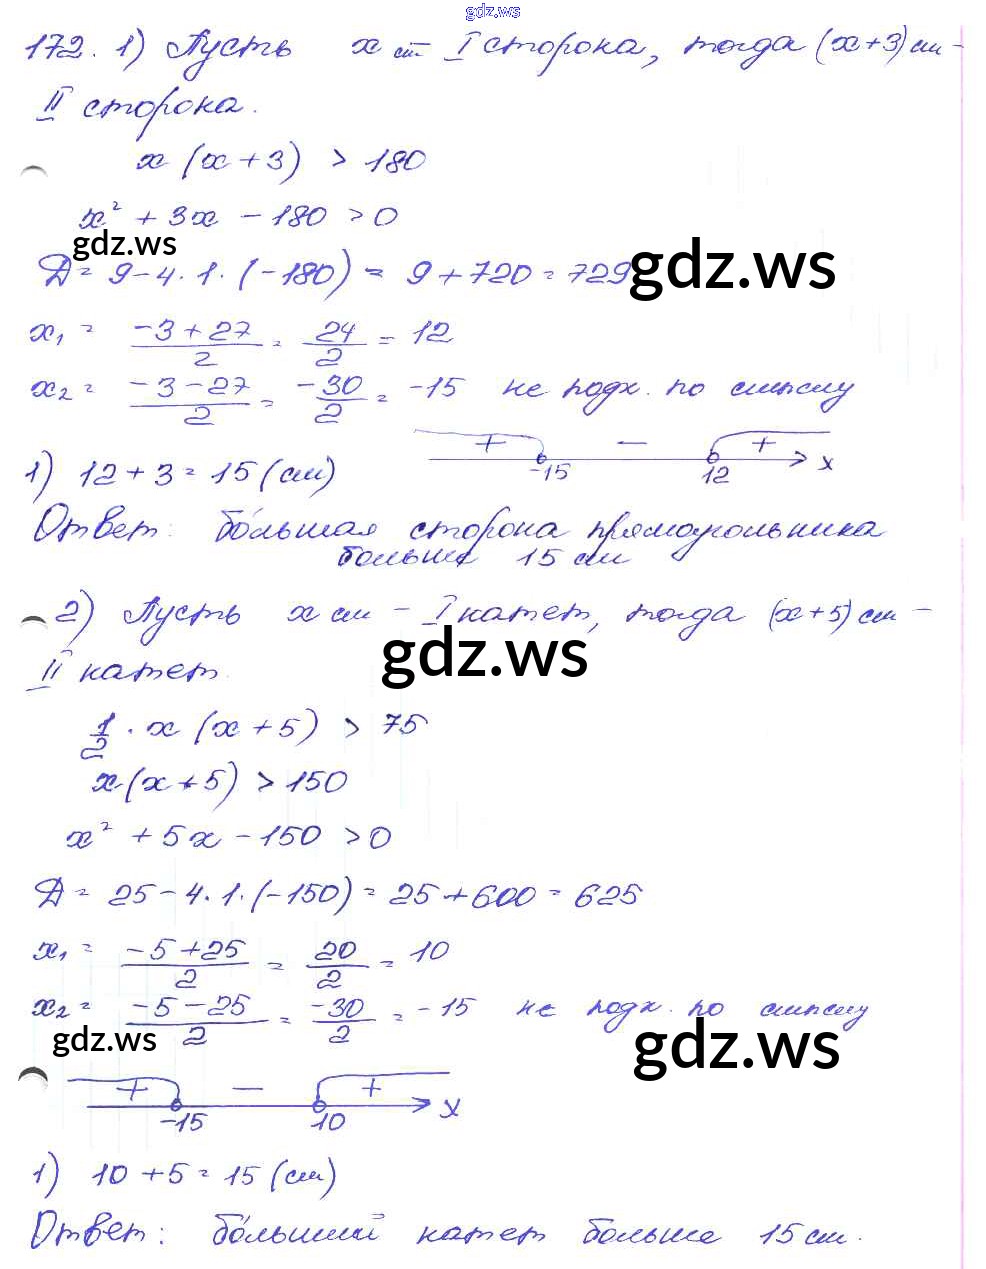 gdz.ws
172. 1) Пусть x см I сторона, тогда (x+3) см -
II сторона.
x (x + 3) > 180
x² + 3x - 180 > 0
gdz.ws
Д = 9 - 4 · 1 · (-180) = 9 + 720 = 729
gdz.ws
x₁ = (-3 + 27)/2 = 24/2 = 12
x₂ = (-3 - 27)/2 = -30/2 = -15 не подх. по смыслу
+ - +
-15 12 x
1) 12 + 3 = 15 (см)
Ответ: бо́льшая сторона прямоугольника
больше 15 см
2) Пусть x см - I катет, тогда (x+5) см -
gdz.ws
II катет.
1/2 · x (x + 5) > 75
x (x + 5) > 150
x² + 5x - 150 > 0
Д = 25 - 4 · 1 · (-150) = 25 + 600 = 625
x₁ = (-5 + 25)/2 = 20/2 = 10
x₂ = (-5 - 25)/2 = -30/2 = -15 не подх. по смыслу
gdz.ws
gdz.ws
+ - +
-15 10 x
1) 10 + 5 = 15 (см)
Ответ: бо́льший катет больше 15 см.